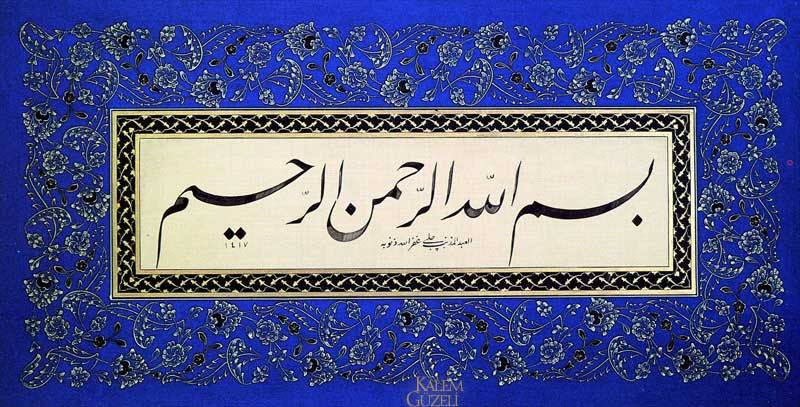 بسم الله الرحمن الرحيم
العبد المذنب چلبی غفر الله ذنوبه
١٤١٧
KALEM
GÜZELİ